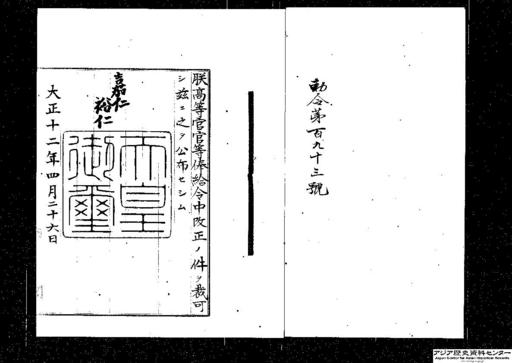 勅令第百九十三號
朕高等官官等俸給令中改正ノ件ヲ裁可
シ茲ニ之ヲ公布セシム
嘉仁
裕仁
天皇御璽
大正十二年四月二十六日
アジア歴史資料センター
Japan Center for Asian Historical Records